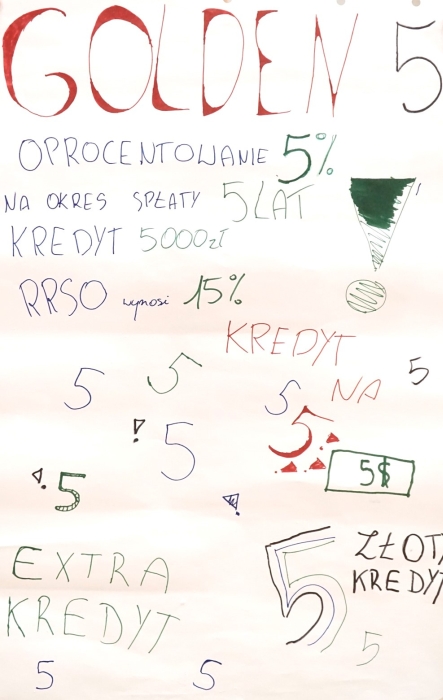 GOLDEN 5
OPROCENTOWANIE 5%
NA OKRES SPŁATY 5 LAT
KREDYT 5000zł
RRSO wynosi 15%
KREDYT
NA
5
5
5
5
5
5
5
5$
EXTRA
KREDYT
5 ZŁOTY
KREDYT
5
5
5